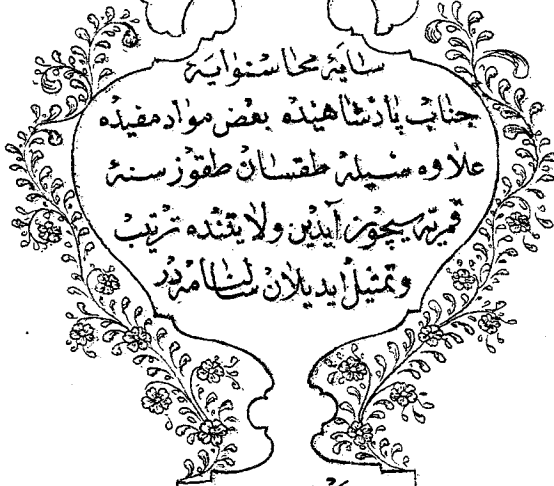 سایهٔ محاسنوایهٔ
جناب پادشاهیده بعض مواد مفیده
علاوه سیله طقسان طقوز سنهٔ
قمریه سیچون آیدین ولایتنده ترتیب
وتمثیل ایدیلان سالنامه در